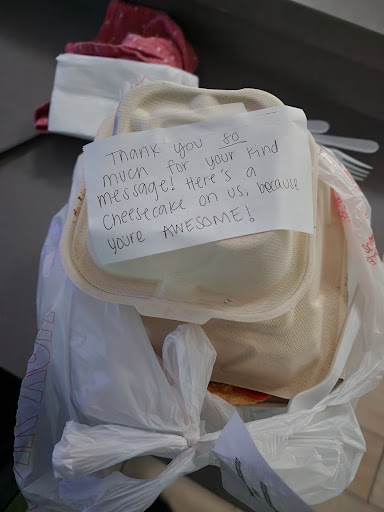 Thank you so
much for your kind
message! Here's a
cheesecake on us, because
youre AWESOME!